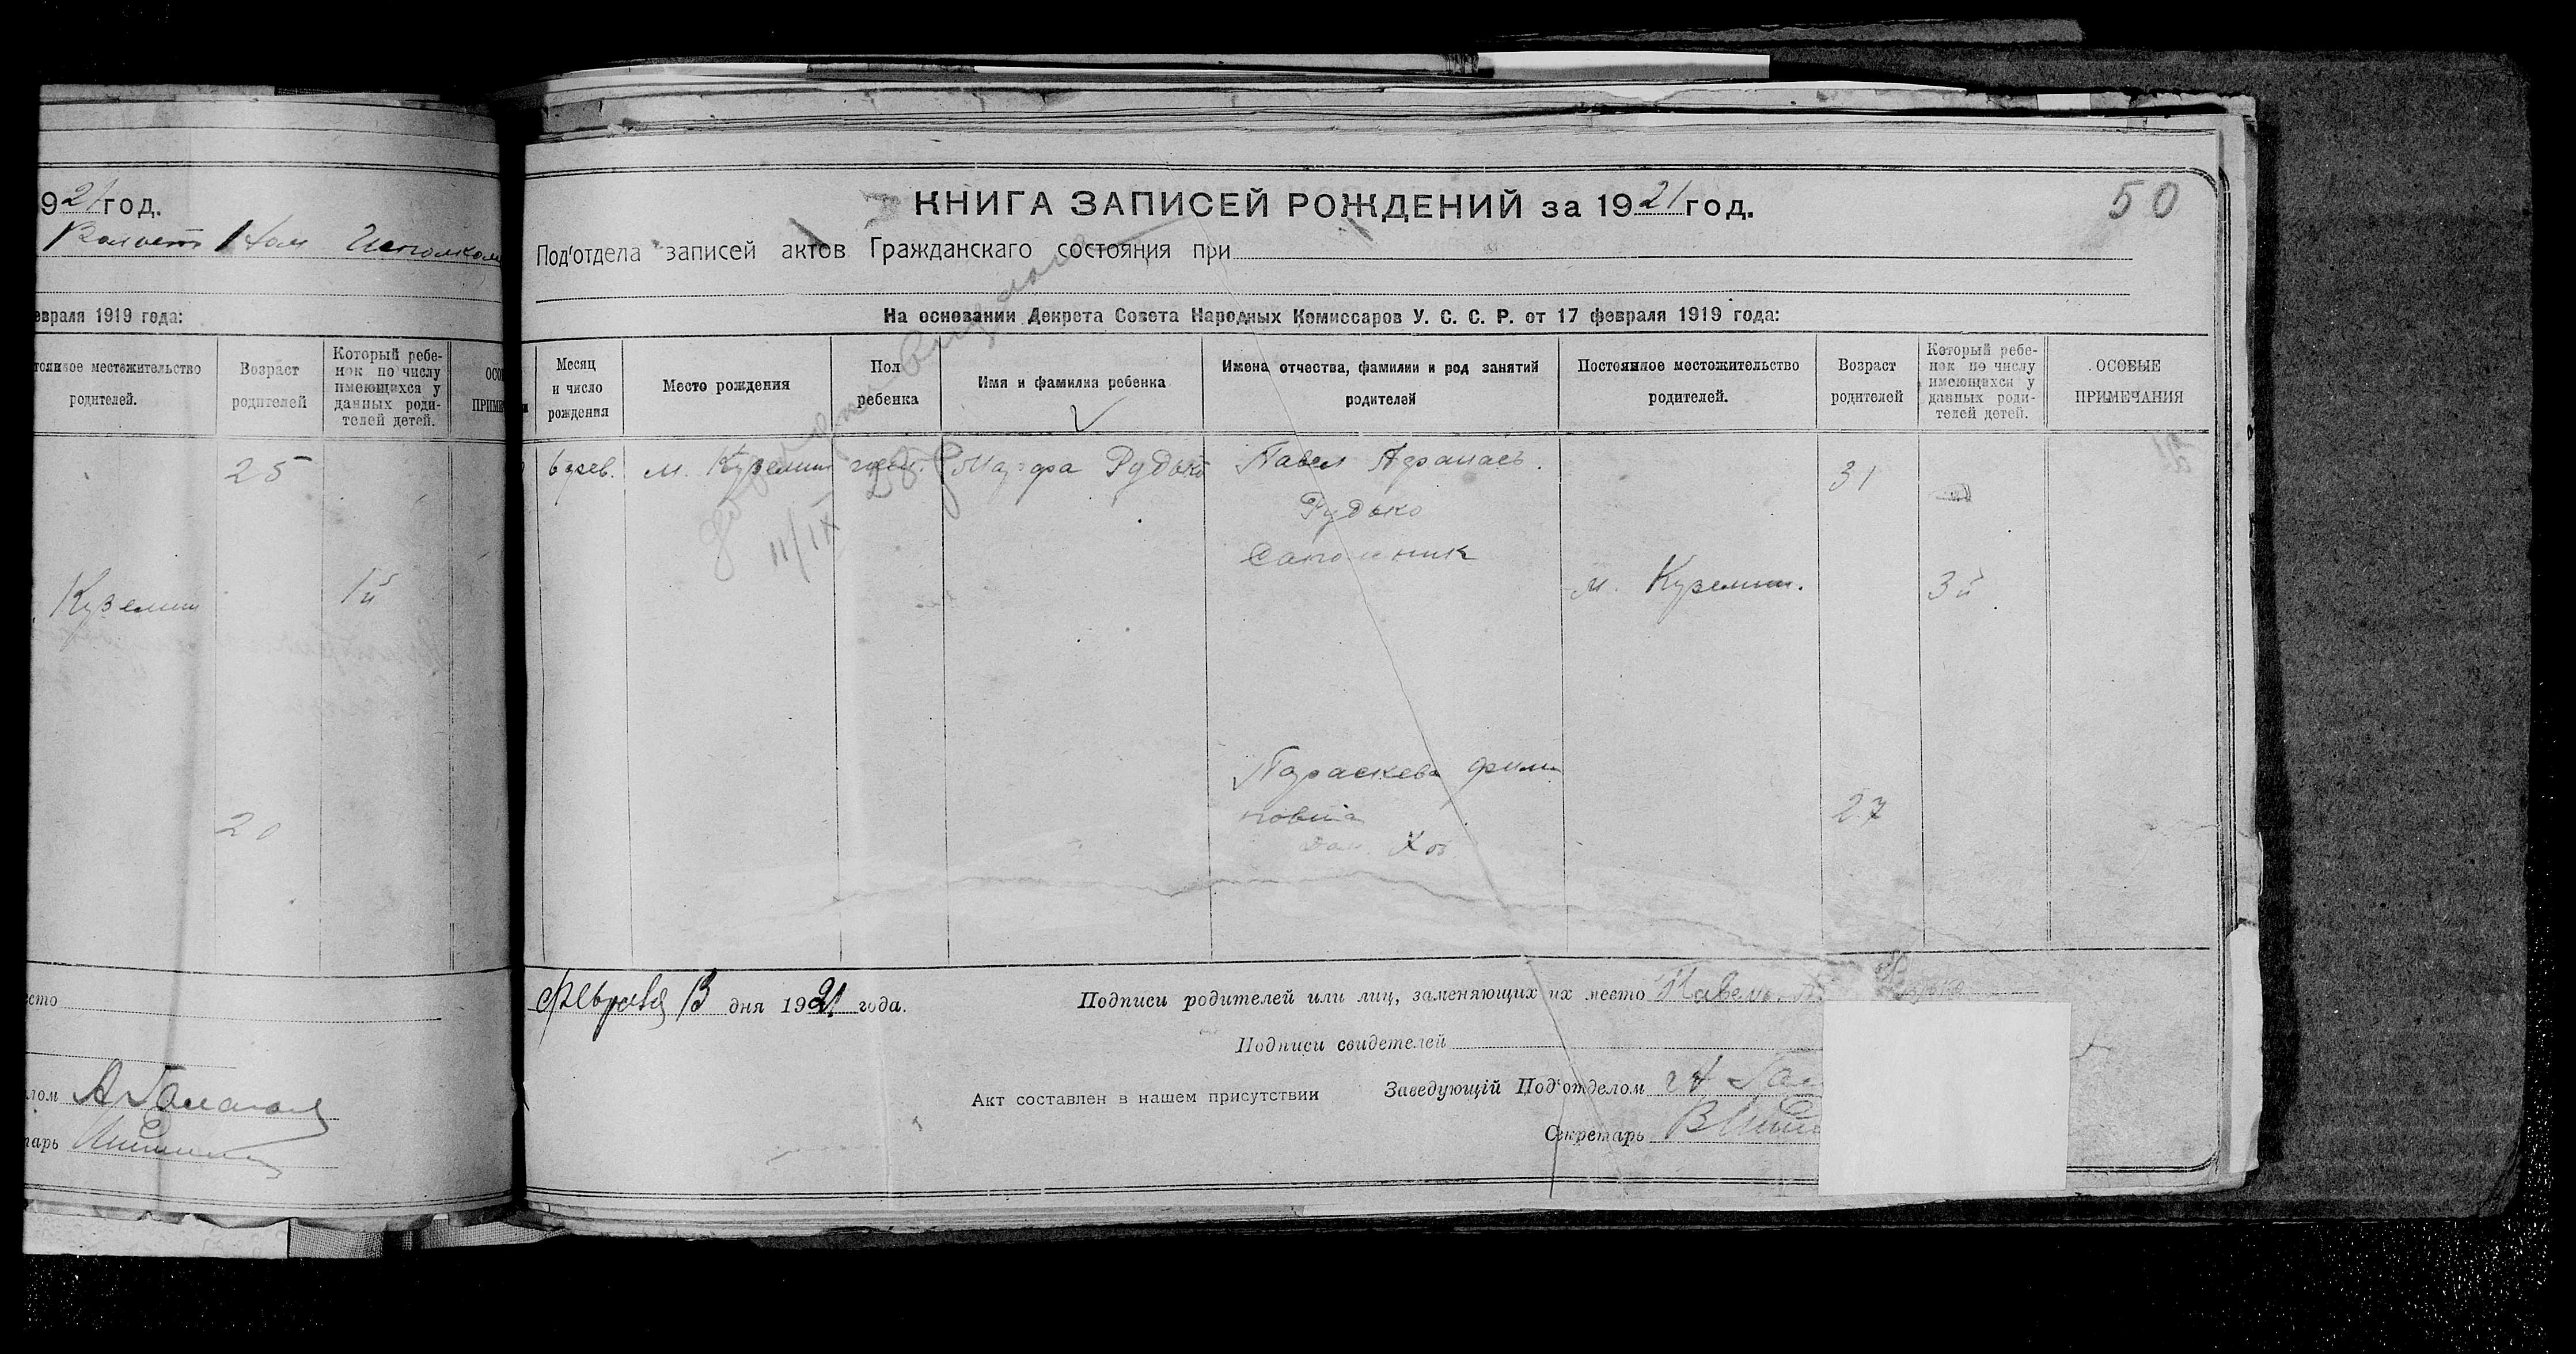 921 год.
Исполком
евраля 1919 года:
тоянное местожительство
родителей.
Возраст
родителей
Который ребе-
нок по числу
имеющихся у
данных роди-
телей детей.
25
Куземин
1й
20
А
КНИГА ЗАПИСЕЙ РОЖДЕНИЙ за 1921 год.
50
Под'отдела записей актов Гражданскаго состояния при
На основании Декрета Совета Народных Комиссаров У. С. С. Р. от 17 февраля 1919 года:
Месяц
и число
рождения
Место рождения
Пол
ребенка
Имя и фамилия ребенка
Имена отчества, фамилии и род занятий
родителей
Постоянное местожительство
родителей.
Возраст
родителей
Который ребе-
нок по числу
имеющихся у
данных роди-
телей детей.
ОСОБЫЕ
ПРИМЕЧАНИЯ
6 фев.
м. Куземин
жен.
Марфа Рудько
Павел Афанасъ.
Рудько
Сапожник
м. Куземин.
31
3й
11/IX 28
Параскева Фили
повна
27
Февраля 13 дня 1921 года.
Подписи родителей или лиц, заменяющих их место Павел
Подписи свидетелей
Акт составлен в нашем присутствии
Заведующій Под'отделом А
Секретарь